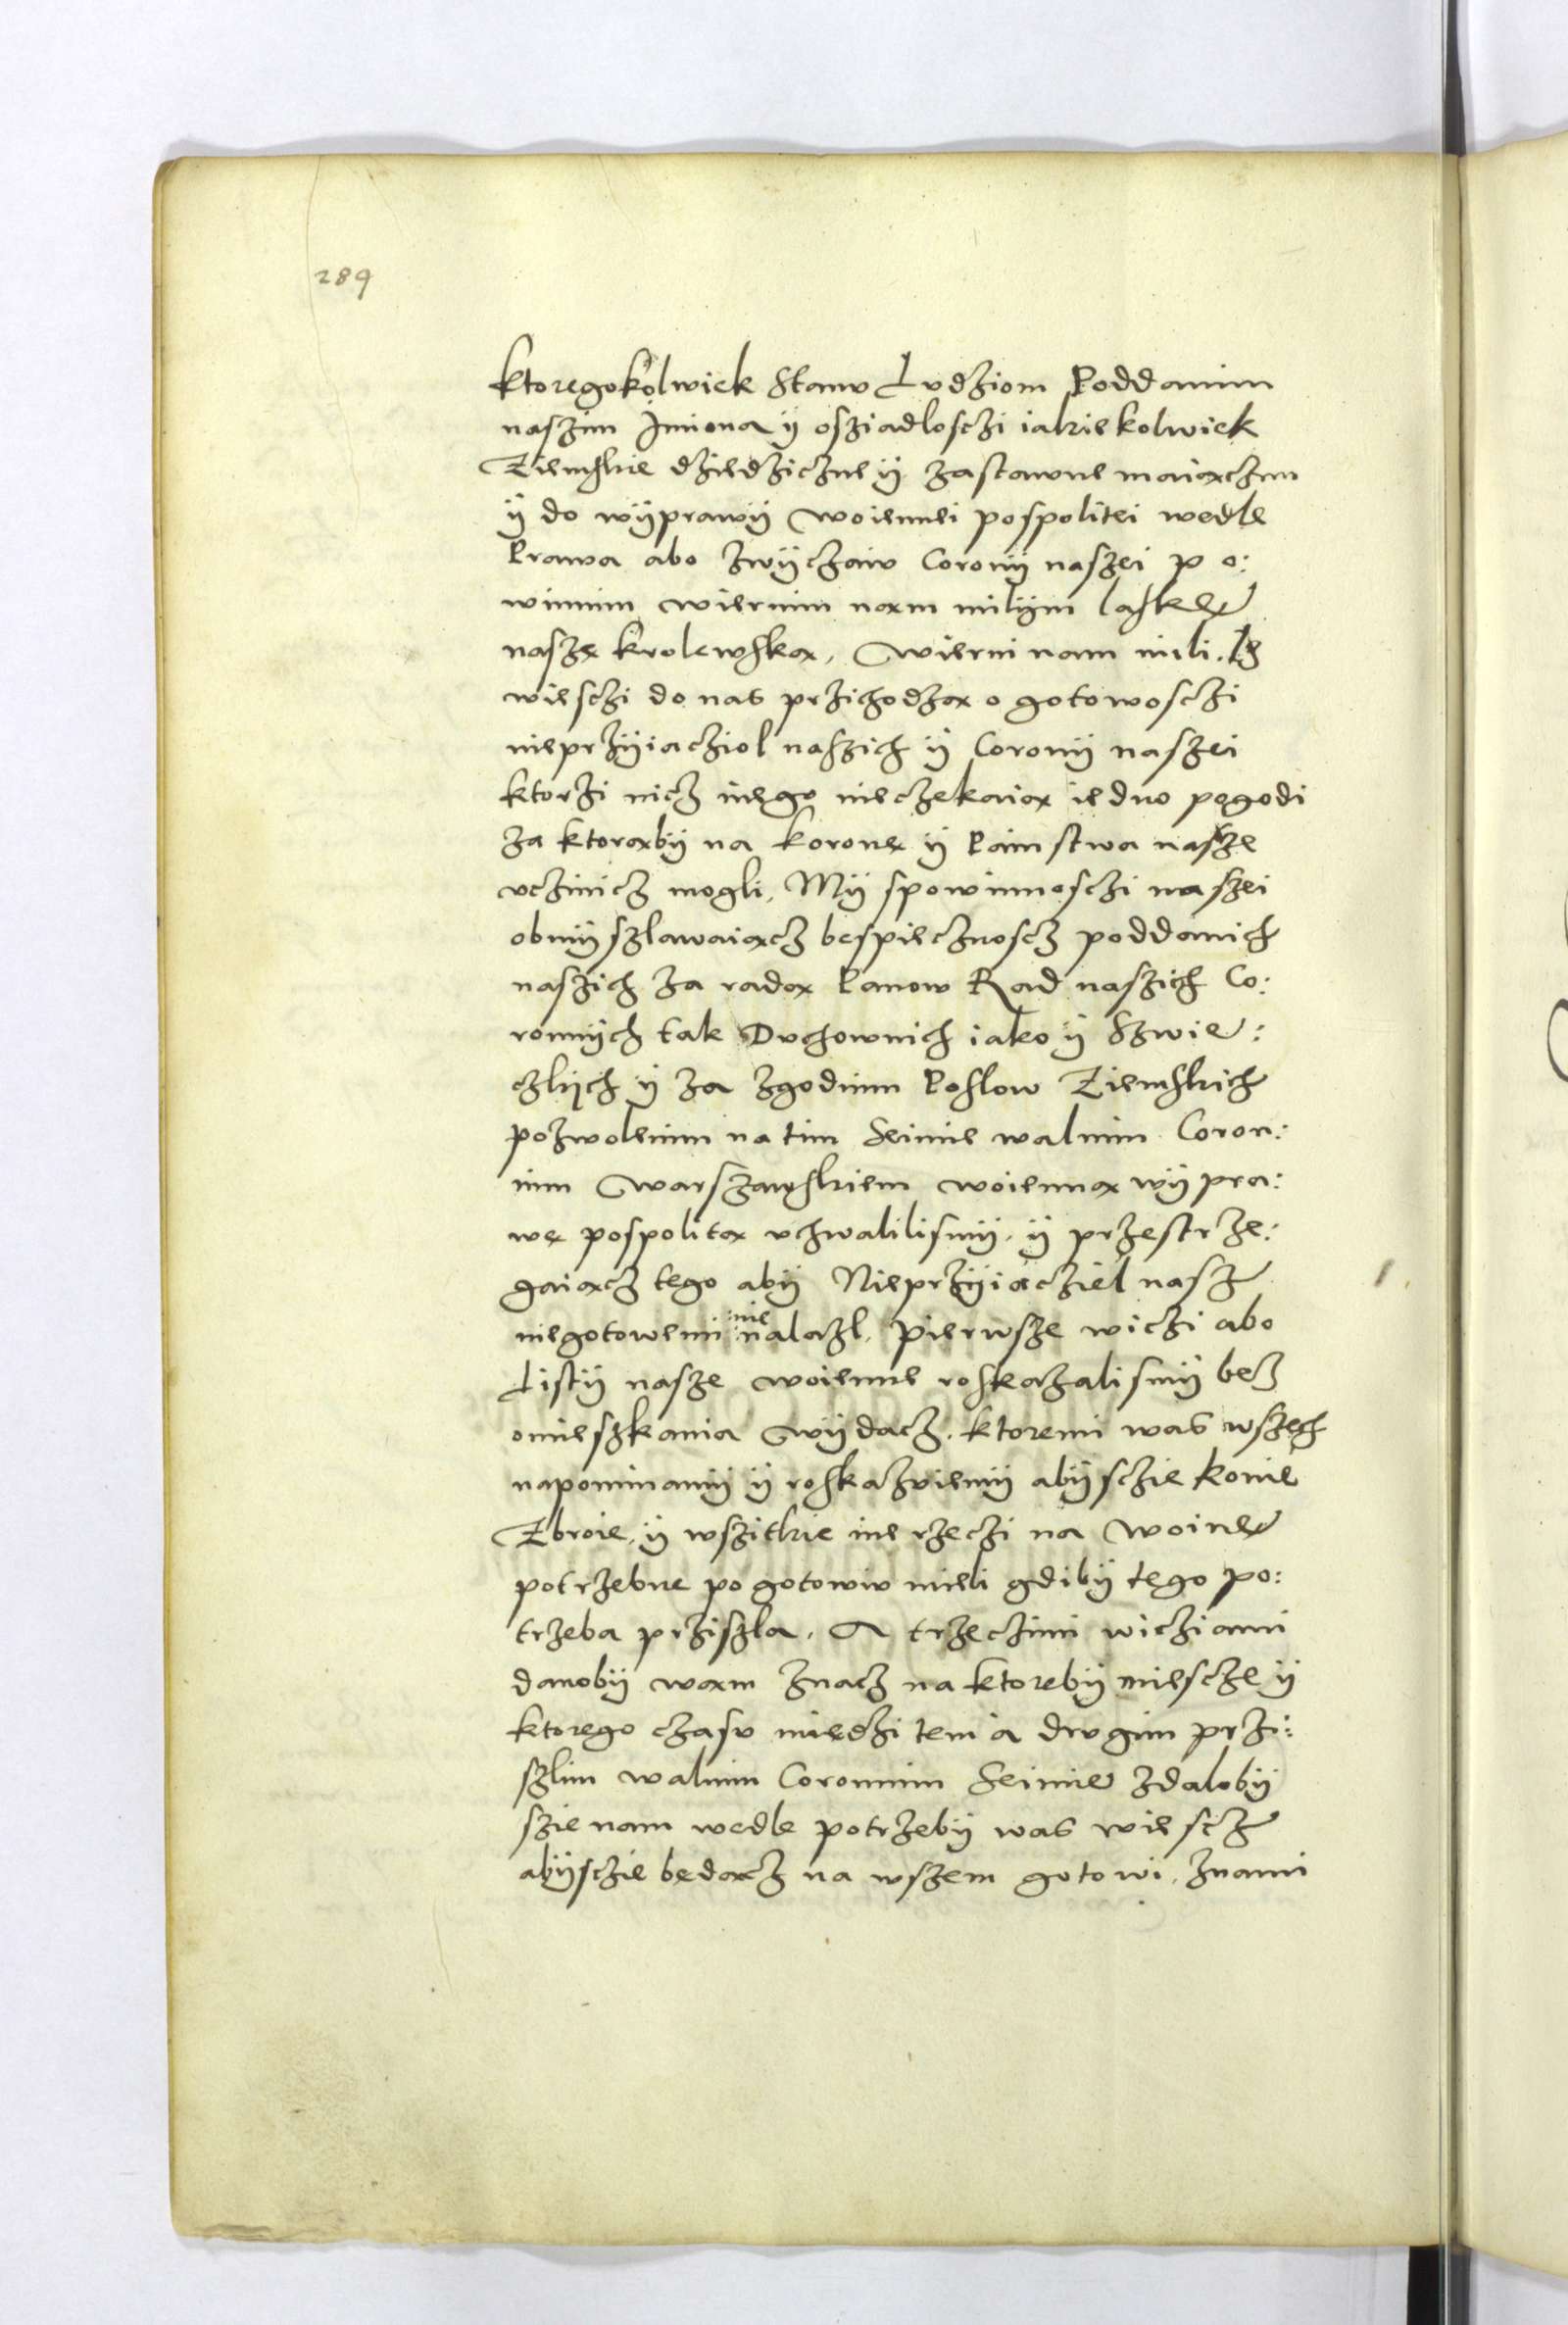 289
ktoregokolwiek Stanu Ludziom Poddanim
naszim Imiona ÿ osziadlosczi iakiekolwiek
Ziemskie dziedziczne ÿ zastawne maiaczim
ÿ do wÿprawÿ woiennei pospolitei wedle
Prawa abo zwÿczaiu Coronÿ naszei po:
winnim wiernim nam milÿm laskę
naszę krolewska, Wierni nam mili. Iż
wiesczi do nas przichodza o gotowosczi
nieprzÿiacziol naszich ÿ Coronÿ naszei
ktorzi nicz inego nieczekaia iedno pogodi
za ktorabÿ na koronę ÿ Painstwa nasze
uczinicz mogli, Mÿ spowinnosczi naszei
obmÿszlawaiacz bespiecznoscz poddanich
naszich za rada Panow Rad naszich Co:
ronnÿch tak Duchownich iako ÿ Szwie:
czkÿch ÿ za zgodnim Poslow Ziemskich
pozwolenim na tim Seimie walnim Coron:
nim Warszawskiem woienna wÿpra:
wę pospolita uchwalilismÿ. ÿ przestrze:
gaiacz tego abÿ Nieprzÿiacziel nasz
niegotowemi nie nalazl, pierwsze wiczi abo
Listÿ nasze woienne roskazalismÿ bez
omieszkania wÿdacz. ktoremi was wszech
napominamÿ ÿ roskazuiemÿ abÿsczie konie
Zbroie, ÿ wszitkie ine rzeczi na woinę
potrzebne po gotowiu mieli gdibÿ tego po:
trzeba prziszla. A trzeczimi wicziami
danobÿ wam znacz na ktorebÿ miescze ÿ
ktorego czasu miedzi tem a drugim przi:
szlim walnim Coronnim Seimie zdalobÿ
szie nam wedle potrzebÿ was wiescz
abÿsczie będacz na wszem gotowi, znami